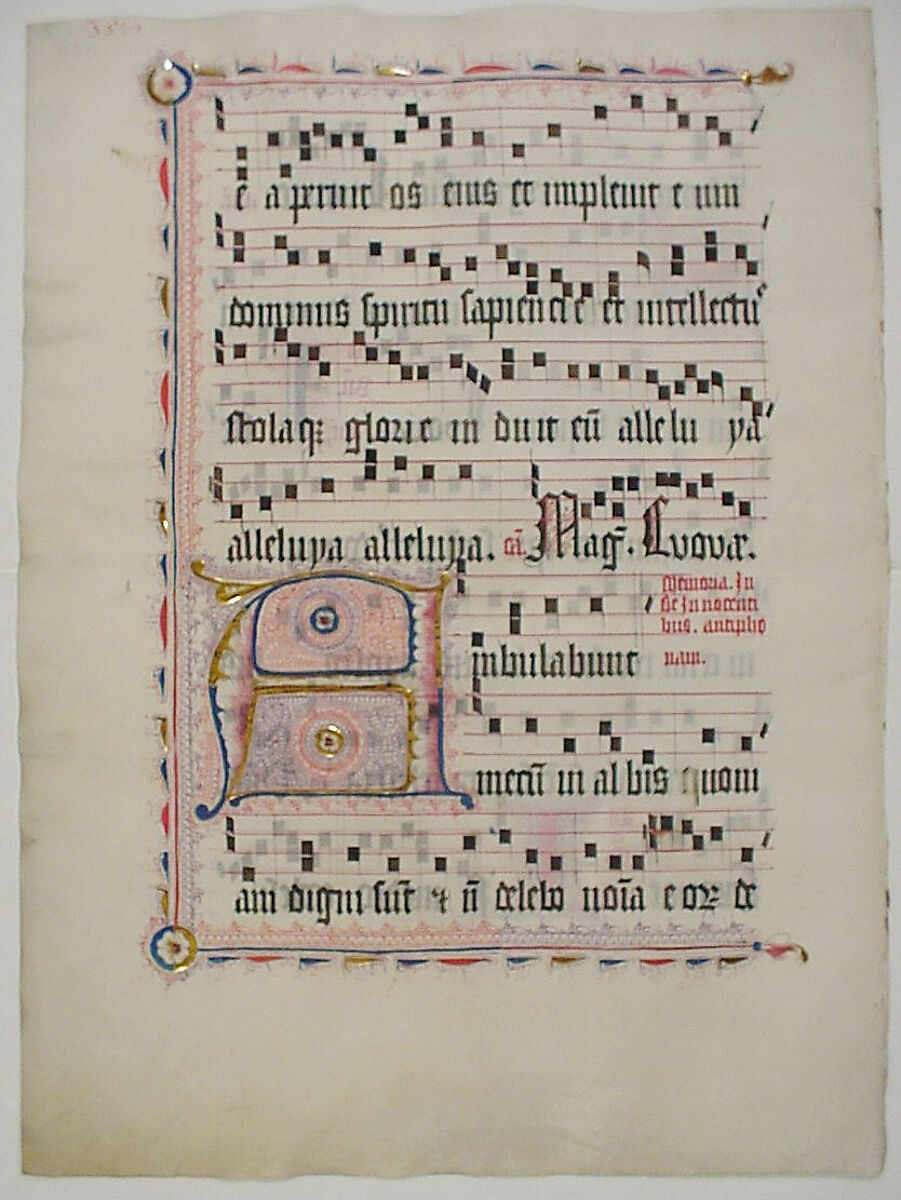 e aperuit os eius et impleuit eum
dominus spiritu sapiencie et intellectu
stolaqꝫ glorie induit eū alleluya
alleluya alleluya. Mag̃. Euouae.
Memoria. In
bus. antipho
nam.
Ambulabunt
mecū in albis quoni
am digni sūt ⁊ nō delebo noīa eoꝝ de